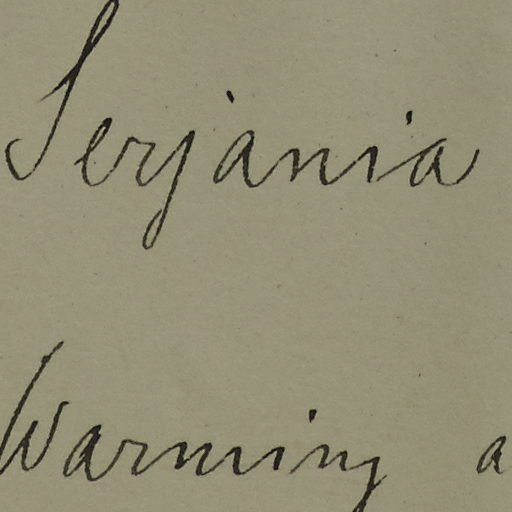 Serjania
Warming a